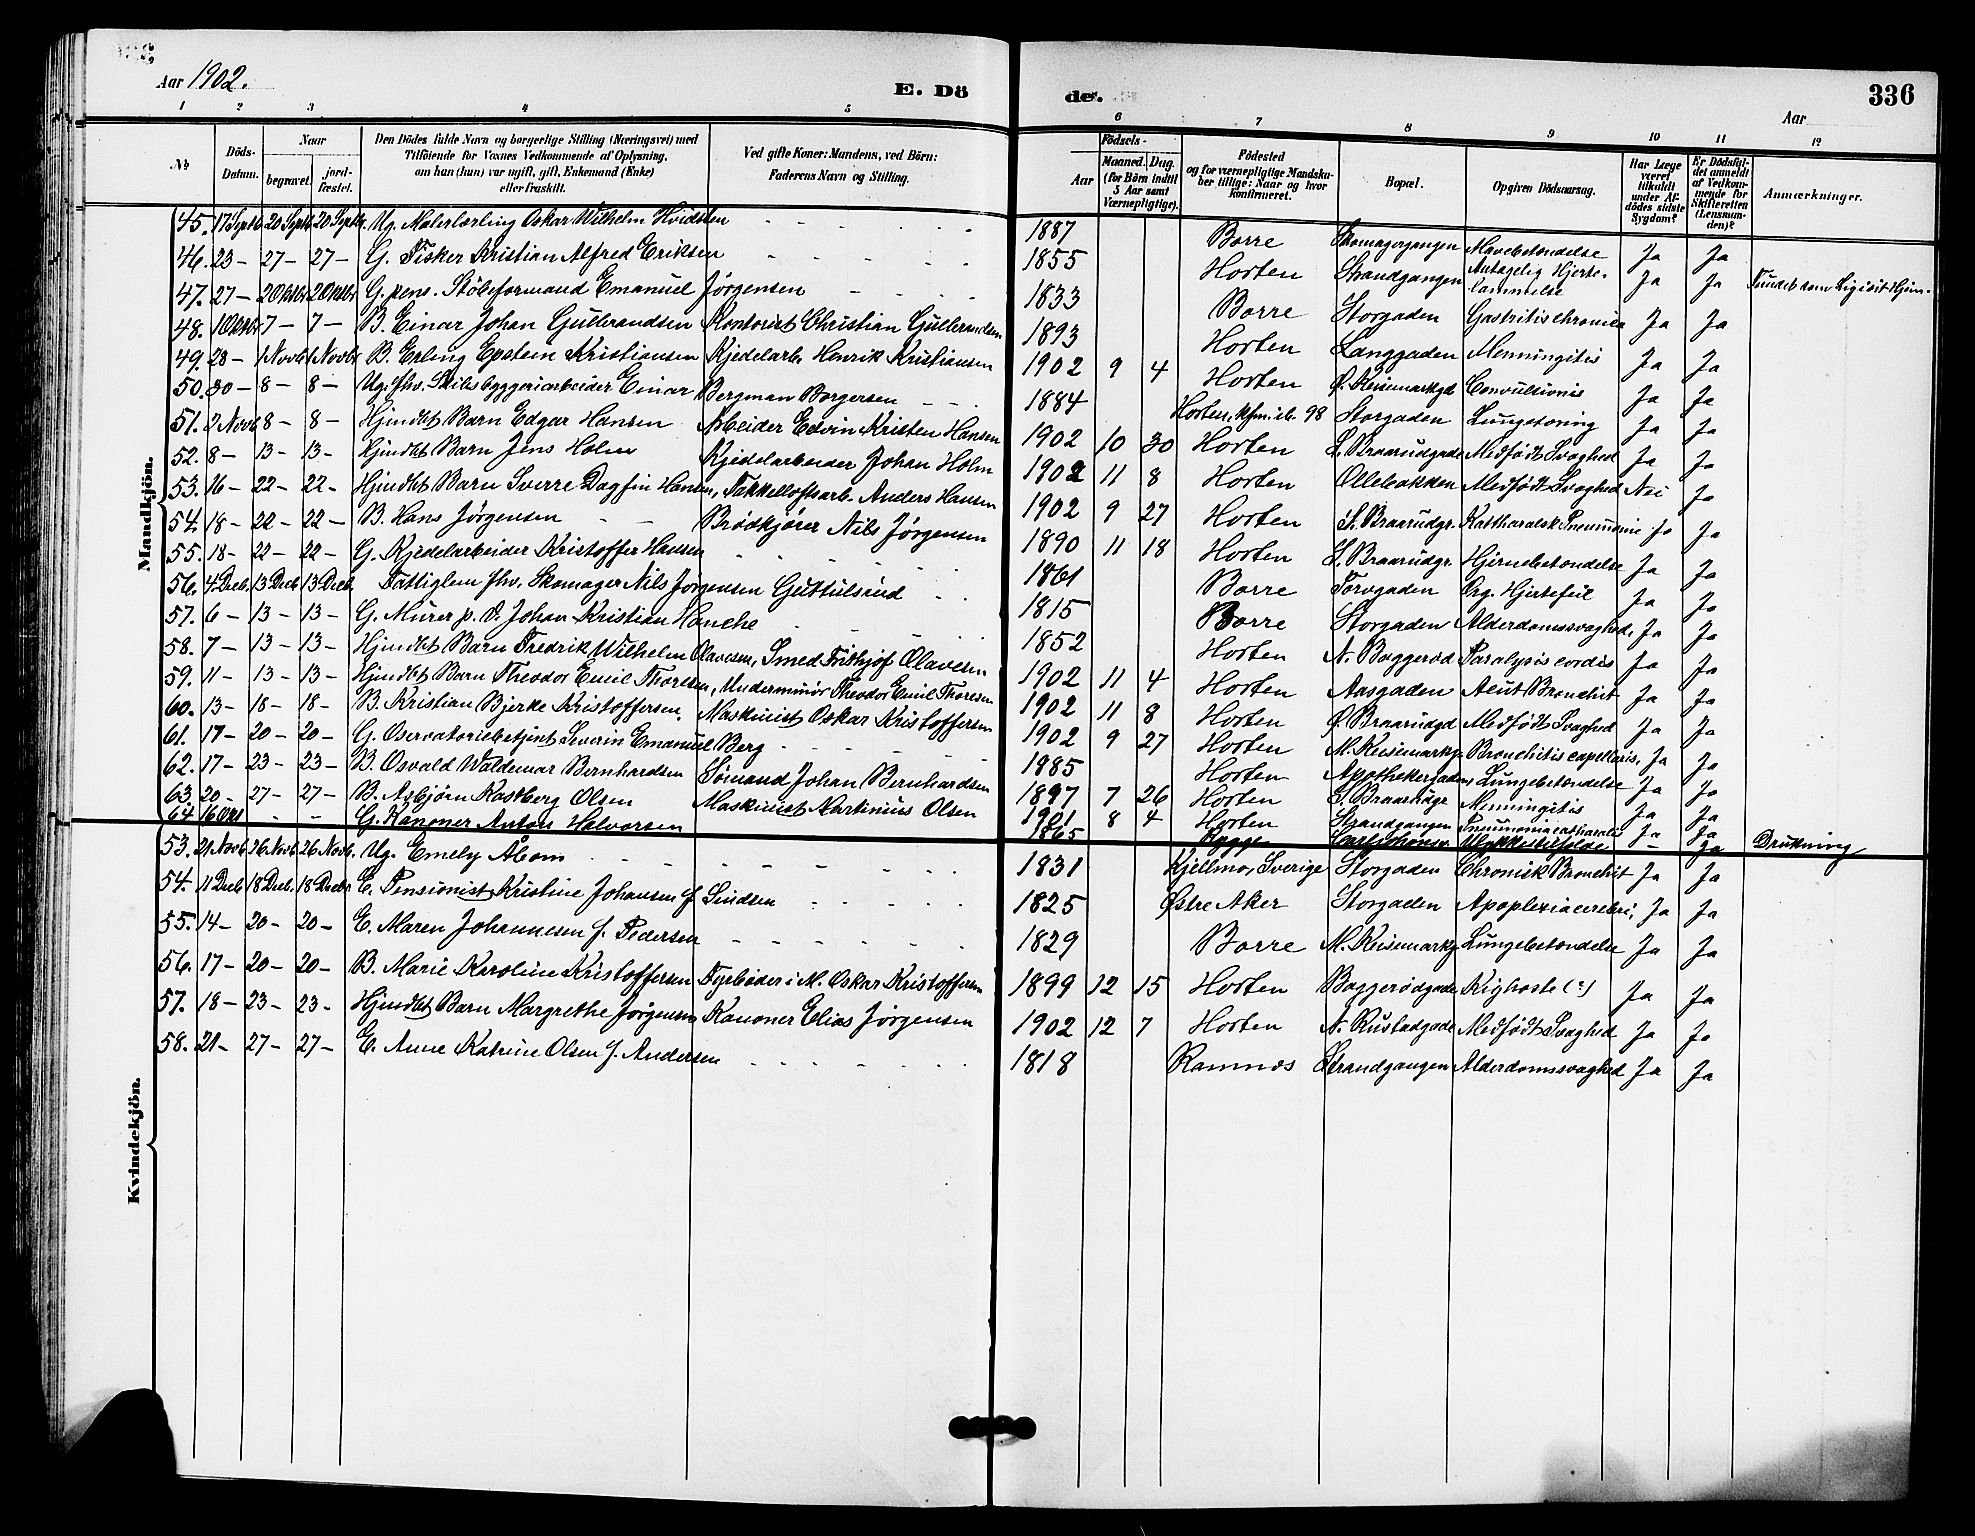 Aar 1902.
E. Dö
de.
336
Aar
1 2 3 4 5 6 7 8 9 10 11 12
No
Döds-Datum.
Naar
begravet.
jord-fæstet.
Den Dödes fulde Navn og borgerlige Stilling (Næringsvei) med
Tilföiende for Voxnes Vedkommende af Oplysning,
om han (hun) var ugift, gift, Enkemand (Enke)
eller fraskilt.
Ved gifte Koner: Mandens, ved Börn:
Faderens Navn og Stilling.
Födsels-
Aar
Maaned. Dag.
(for Börn indtil
5 Aar samt
Værnepligtige).
Födested
og for værnepligtige Mandska-
ber tillige: Naar og hvor
konfirmeret.
Bopæl.
Opgiven Dödsaarsag.
Har Læge
været
tilkaldt
under Af-
dödes sidste
Sygdom?
Er Dödsfal-
det anmeldt
af Vedkom-
mende for
Skifteretten
(Lensman-
den)?
Anmærkninger.
Mandkjön.
45. 17 Septb. 20 Septb. 20 Septb. Ug. Malerlærling Oskar Wilhelm Hvidsten - - 1887 Borre Skomagergangen Mavebetændelse Ja Ja
46. 23 - 27 - 27 - G. Fisker Kristian Alfred Eriksen - - 1855 Horten Strandgangen Antagelig Hjertelammelse Ja Ja Fundet som Lig i sit Hjem.
47. 27 - 2 Oktbr 2 Oktbr G. pens. Støberformand Emanuel Jørgensen - - 1833 Borre Storgaden Gastritis chronica Ja Ja
48. 1 Oktbr 7 - 7 - B. Einar Johan Gulbrandsen Kontorist Christian Gulbrandsen 1893 Horten Langgaden Menningitis Ja Ja
49. 28 - 1 Novb. 1 Novb. B. Erling Epstein Kristiansen Kjedelarb. Henrik Kristiansen 1902 9 4 Horten Ø. Keisemarkgd. Convultionis Ja Ja
50. 30 - 8 - 8 - Ug. fhv. Skibsbyggeriarbeider Einar Bergman Borgersen - - 1884 Horten, kfm. ib. 98 Storgaden Lungetæring Ja Ja
51. 2 Novb. 8 - 8 - Hjmdbt Barn Edgar Hansen Arbeider Edvin Kristen Hansen 1902 10 30 Horten S. Braarudgade Medfødt Svaghed Ja Ja
52. 8 - 13 - 13 - Hjmdbt Barn Jens Holm Kjedelarbeider Johan Holm 1902 11 8 Horten Ollebakken Medfødt Svaghed Nei Ja
53. 16 - 22 - 22 - Hjmdbt Barn Sverre Dagfin Hansen, Takkelloftsarb. Anders Hansen 1902 9 27 Horten S. Braarudgr. Kattharalsk Pneumonie Ja Ja
54. 18 - 22 - 22 - B. Hans Jørgensen - - Brødkjører Nils Jørgensen 1890 11 18 Horten S. Braarudgr. Hjernebetændelse Ja Ja
55. 18 - 22 - 22 - G. Kjedelarbeider Kristoffer Hansen - - 1861 Borre Torvgaden Org. Hjertefeil Ja Ja
56. 4 Decb. 13 Decb. 13 Decb. Fattiglem fhv. Skomager Nils Jørgensen Guttulsrud - - 1815 Borre Storgaden Alderdomssvaghed. Ja Ja
57. 6 - 13 - 13 - G. Murer p. V. Johan Kristian Hanche - - 1852 Horten N. Baggerød Paralysis cordis Ja Ja
58. 7 - 13 - 13 - Hjmdbt Barn Fredrik Wilhelm Olavesen, Smed Frithjof Olavesen 1902 11 4 Horten Aasgaden Akut Bronchit Ja Ja
59. 11 - 13 - 13 - Hjmdbt Barn Theodor Emil Thoresen, Underminør Theodor Emil Thoresen 1902 11 8 Horten Ø. Braarudgd Medfødt Svaghed Ja Ja
60. 13 - 18 - 18 - B. Kristian Bjerke Kristoffersen. Maskinist Oskar Kristoffersen 1902 9 27 Horten M. Keisemarkg. Bronchitis capellaris, Ja Ja
61. 17 - 20 - 20 - G. Oservatoriebetjent Severin Emanuel Berg - - 1885 Horten Apothekergaden, Lungebetændelse Ja Ja
62. 17 - 23 - 23 - B. Osvald Waldemar Bernhardsen Sømand Johan Bernhardsen 1897 7 26 Horten S. Braarudgr Menningitis Ja Ja
63. 20 - 27 - 27 - B. Asbjørn Kastberg Olsen Maskinist Martinius Olsen 1901 8 4 Horten Strandgangen Pneumonia catharalis Ja Ja
64 16 Okt - - G. Kanoner Anton Halvorsen 1865 Rygge Carl Johansv. Ulykkestilfælde - Ja Drukning
Kvindekjön.
53. 21 Novb. 26 Novb. 26 Novb. Ug. Emely Åbom - - 1831 Kjellmo, Sverige Storgaden Chronisk Bronchit Ja Ja
54. 11 Decb. 18 Decb. 18 Decbr E. Pensionist Kristine Johansen f. Lindsen - - 1825 Østre Aker Storgaden Apoplexia cerebri, Ja Ja
55. 14 - 20 - 20 - E. Maren Johannesen f. Pedersen - - 1829 Borre M. Keisemarkg. Lungebetændelse Ja Ja
56. 17 - 20 - 20 - B. Marie Karoline Kristoffersen Fyrbøder i M. Oskar Kristoffersen 1899 12 15 Horten Baggerødgade Kighoste (?) Ja Ja
57. 18 - 23 - 23 - Hjmdbt Barn Margrethe Jørgensen Kanoner Elias Jørgensen 1902 12 7 Horten N. Rustadgade Medfødt Svaghed Ja Ja
58. 21 - 27 - 27 - E. Anne Katrine Olsen f. Andersen - - 1818 Ramnes Strandgangen Alderdomssvaghed Ja Ja